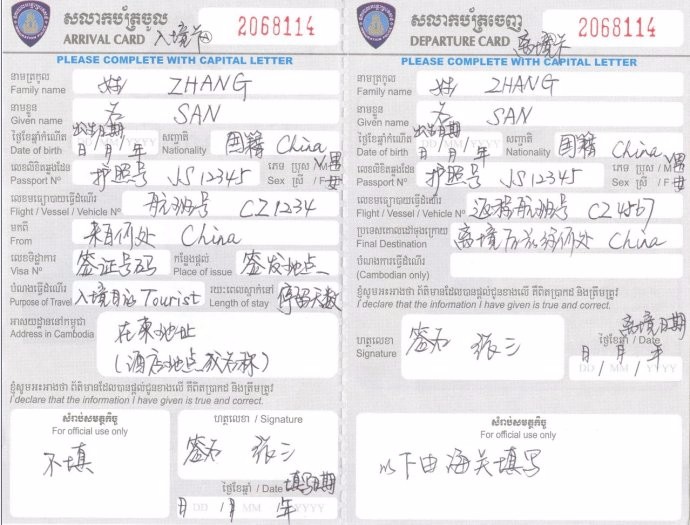 សលាកប័ត្រចូល
ARRIVAL CARD 入境卡
2068114
PLEASE COMPLETE WITH CAPITAL LETTER
នាមត្រកូល
Family name 姓 ZHANG
នាមខ្លួន
Given name 名 SAN
ថ្ងៃខែឆ្នាំកំណើត 出生日期 សញ្ជាតិ
Date of birth 日 月 年 Nationality 国籍 China
លេខលិខិតឆ្លងដែន ភេទ ប្រុស / M √男
Passport Nº 护照号 JS12345 Sex ស្រី / F 女
លេខមធ្យោបាយធ្វើដំណើរ
Flight / Vessel / Vehicle Nº 航班号 CZ1234
មកពី
From 来自何处 China
លេខទិដ្ឋាការ កន្លែងផ្តល់
Visa Nº 签证号码 Place of issue 签发地点
បំណងធ្វើដំណើរ រយៈពេលស្នាក់នៅ
Purpose of Travel 入境目的 Tourist Length of stay 停留天数
អាសយដ្ឋាននៅកម្ពុជា
Address in Cambodia 在柬地址
(酒店地点或名称)
ខ្ញុំសូមអះអាងថា ព័ត៌មានដែលបានផ្តល់ជូនខាងលើ គឺពិតប្រាកដ និងត្រឹមត្រូវ
I declare that the information I have given is true and correct.
សំរាប់សមត្ថកិច្ច
For official use only
不填
ហត្ថលេខា / Signature
签名 张三
ថ្ងៃខែឆ្នាំ / Date 填写日期
日 月 年
DD MM YYYY
សលាកប័ត្រចេញ
DEPARTURE CARD 离境卡
2068114
PLEASE COMPLETE WITH CAPITAL LETTER
នាមត្រកូល
Family name 姓 ZHANG
នាមខ្លួន
Given name 名 SAN
ថ្ងៃខែឆ្នាំកំណើត 出生日期 សញ្ជាតិ
Date of birth 日 月 年 Nationality 国籍 China
លេខលិខិតឆ្លងដែន ភេទ ប្រុស / M √男
Passport Nº 护照号 JS12345 Sex ស្រី / F 女
លេខមធ្យោបាយធ្វើដំណើរ
Flight / Vessel / Vehicle Nº 返程航班号 CZ4567
ប្រទេសគោលដៅចុងក្រោយ
Final Destination 离境后前往何处 China
បំណងធ្វើដំណើរ
(Cambodian only)
ខ្ញុំសូមអះអាងថា ព័ត៌មានដែលបានផ្តល់ជូនខាងលើ គឺពិតប្រាកដ និងត្រឹមត្រូវ
I declare that the information I have given is true and correct.
ហត្ថលេខា
Signature 签名 张三
离境日期
ថ្ងៃខែឆ្នាំ / Date
日 月 年
DD MM YYYY
សំរាប់សមត្ថកិច្ច
For official use only
以下由海关填写